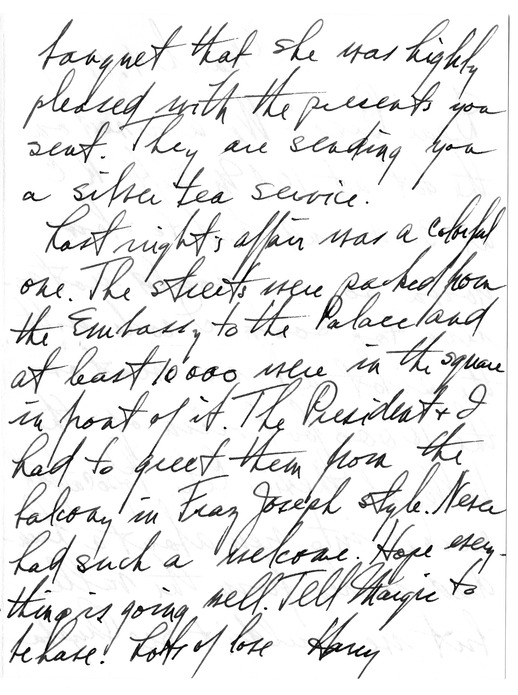 banquet that she was highly
pleased with the presents you
sent. They are sending you
a silver tea service.
Last night's affair was a colorful
one. The streets were packed from
the Embassy to the Palace and
at least 10000 were in the square
in front of it. The President & I
had to greet them from the
balcony in Franz Joseph style. Never
had such a welcome. Hope every-
thing is going well. Tell Margie to
behave. Lots of love Harry